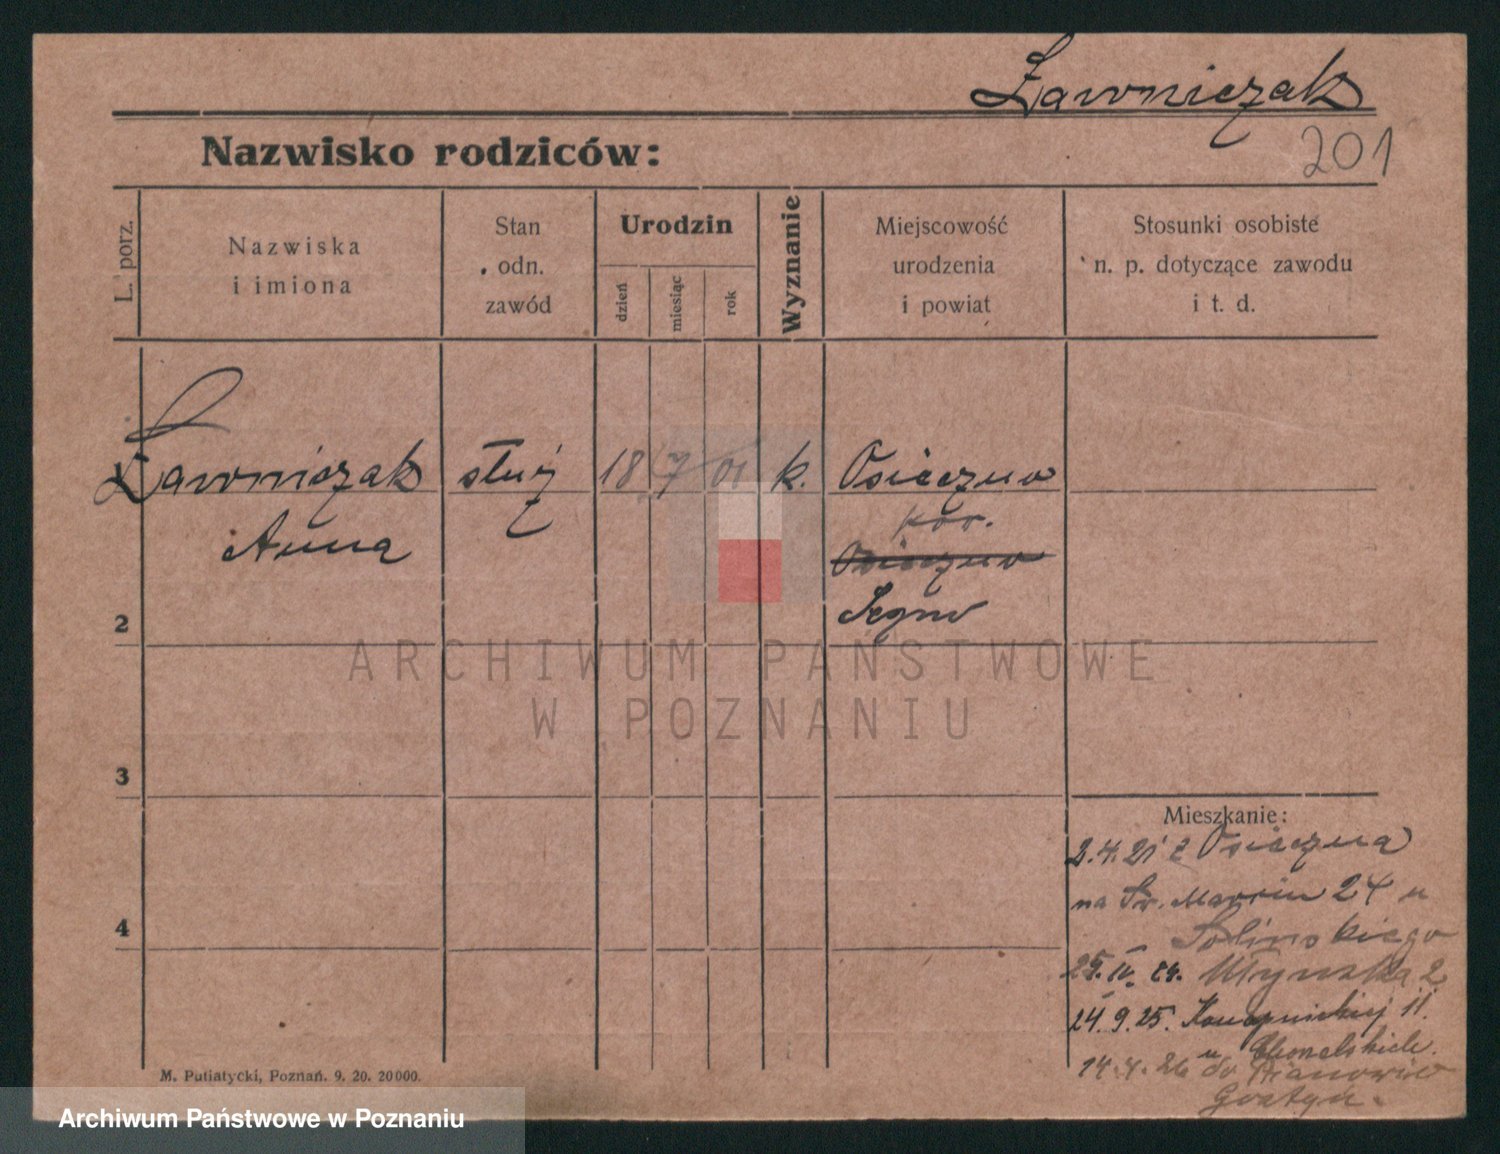 Ławniczak
201
Nazwisko rodziców:
L. porz.
Nazwiska
i imiona
Stan
odn.
zawód
Urodzin
dzień
miesiąc
rok
Wyznanie
Miejscowość
urodzenia
i powiat
Stosunki osobiste
n. p. dotyczące zawodu
i t. d.
Ławniczak
Anna
służ
18 7 01
k.
Osieczno
Osieczno
2
3
4
Mieszkanie:
2.4.21 z Osieczna
na Św. Marcin 24 u
25. IV. 24. Młyńska 2
24. 9. 25. Konopnickiej 11.
14. 4. 26 do
Gostyń.
M. Putiatycki, Poznań. 9. 20. 20000.
ARCHIWUM PAŃSTWOWE
W POZNANIU
Archiwum Państwowe w Poznaniu